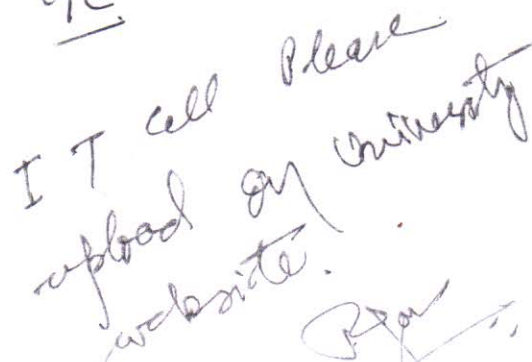 I T Cell Please
upload on University
website.